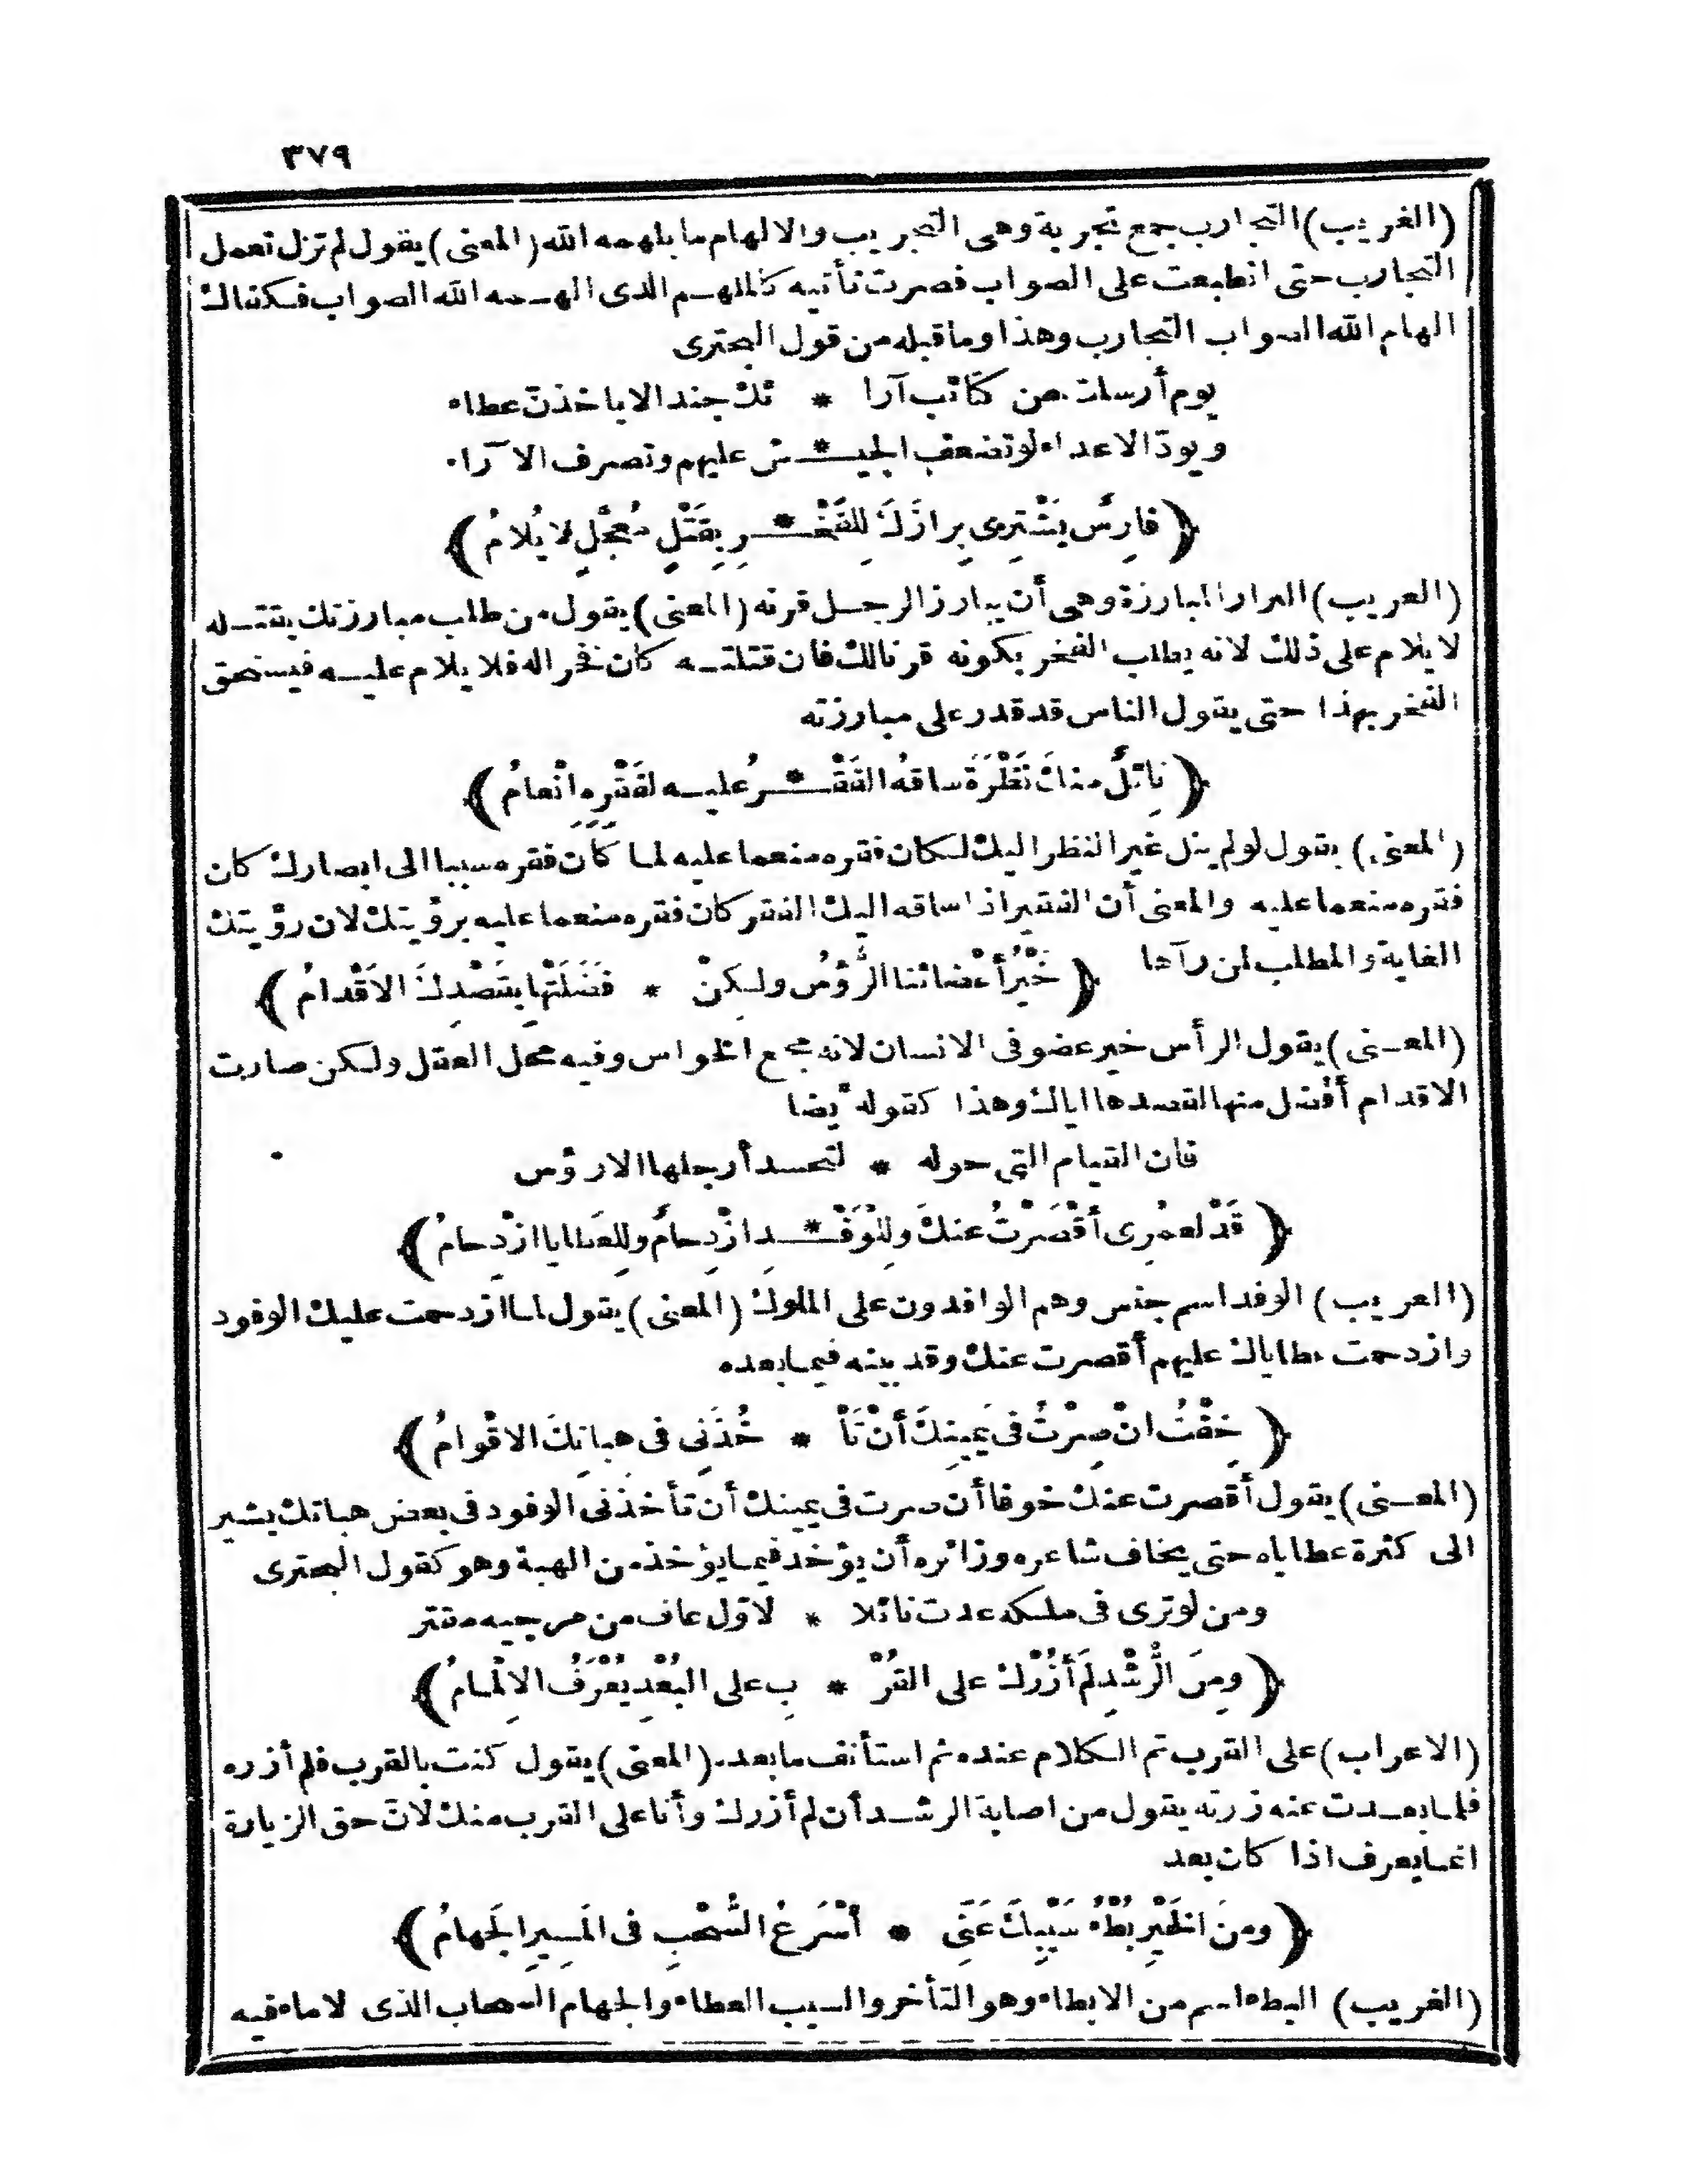 ٣٧٩
(الغريب) التجارب جمع تجربة وهى التجريب والالهام ما يلهمه الله (المعنى) يقول لم تزل تعمل
التجارب حتى انطبعت على الصواب فصرت تأتيه كالملهم الذى الهمه الله الصواب فكفاك
الهام الله الصواب التجارب وهذا وما قبله من قول البحترى
يوم أرسلت من كتائب آرا * ئك جندا لا يأخذن عطاء
ويود الاعداء لو تضعف الجيـ * ـش عليهم وتصرف الآراء
﴿ فارِسٌ يَشْتَرِى بِرازَكَ لِلفَخْـ * ـرِ بِقَتْلٍ مُعَجَّلٍ لا يُلامُ ﴾
(الغريب) البراز المبارزة وهى أن يبارز الرجل قرنه (المعنى) يقول من طلب مبارزتك بقتله
لا يلام على ذلك لانه يطلب الفخر بكونه قرنا لك فان قتلته كان فخرا له فلا يلام عليه فيستحق
الفخر بهذا حتى يقول الناس قد قدر على مبارزته
﴿ نائِلٌ منكَ نَظْرَةً ساقهُ الفَقْـ * ـرُ عليه لفَقْرِه انْعامُ ﴾
(المعنى) يقول لو لم ينل غير النظر اليك لكان فقره منعما عليه لما كان فقره سببا الى ابصارك كان
فقره منعما عليه والمعنى أن الفقير اذا ساقه اليك الفقر كان فقره منعما عليه برؤيتك لان رؤيتك
الغاية والمطلب لمن رآها ﴿ خَيْرُ أعْضائنا الرُّؤُسُ ولكِنْ * فَضَلَتْها بقَصْدِكَ الاَقْدامُ ﴾
(المعنى) يقول الرأس خير عضو فى الانسان لانه مجمع الحواس وفيه محل العقل ولكن صارت
الاقدام أفضل منها لقصدها اياك وهذا كقوله أيضا
فان القيام التى حوله * لتحسد أرجلها الارؤس
﴿ قَدْ لعمْرِى أقْصَرْتُ عنكَ ولِلْوَفْـ * ـدِ ازْدِحامٌ ولِلعَطايا ازْدِحامُ ﴾
(الغريب) الوفد اسم جنس وهم الوافدون على الملوك (المعنى) يقول لما ازدحمت عليك الوفود
وازدحمت عطاياك عليهم أقصرت عنك وقد بينه فيما بعده
﴿ خِفْتُ انْ صِرْتُ فى يَمينِكَ أنْ تَأْ * خُذَنِى فى هباتِكَ الاقْوامُ ﴾
(المعنى) يقول أقصرت عنك خوفا أن صرت فى يمينك أن تأخذنى الوفود فى بعض هباتك يشير
الى كثرة عطاياه حتى يخاف شاعره وزائره أن يؤخذ فيما يؤخذ من الهبة وهو كقول البحترى
ومن لو ترى فى ملكه عدت نائلا * لاول عاف من مرجيه مقتر
﴿ ومِنَ الرُّشْدِ لَم أزُرْكَ على القُرْ * بِ على البُعْدِ يُعْرَفُ الاِلْمامُ ﴾
(الاعراب) على القرب تم الكلام عنده ثم استأنف ما بعد. (المعنى) يقول كنت بالقرب فلم أزره
فلما بعدت عنه زرته يقول من اصابة الرشد أن لم أزرك وأنا على القرب منك لان حق الزيارة
انما يعرف اذا كان بعد
﴿ ومِنَ الخَيْرِ بُطْءُ سَيْبِكَ عَنِّى * أسْرَعُ السُّحْبِ فى المَسِيرِ الجَهامُ ﴾
(الغريب) البطء اسم من الابطاء وهو التأخر والسيب العطاء والجهام السحاب الذى لا ماء فيه